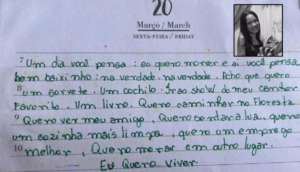 20
Março / March
SEXTA-FEIRA / FRIDAY
7 Um dia você pensa: eu quero morrer e aí você pensa
bem baixinho: na verdade, na verdade. Acho que quero
8 um sorvete. Um cochilo. Ir ao show do meu cantor
favorito. Um livro. Quero caminhar na floresta
9 Quero ver meu amigo, Quero sentar à lua, quero
um cozinha mais limpa, quero um emprego
10 melhor, Quero morar em outro lugar.
Eu Quero Viver.